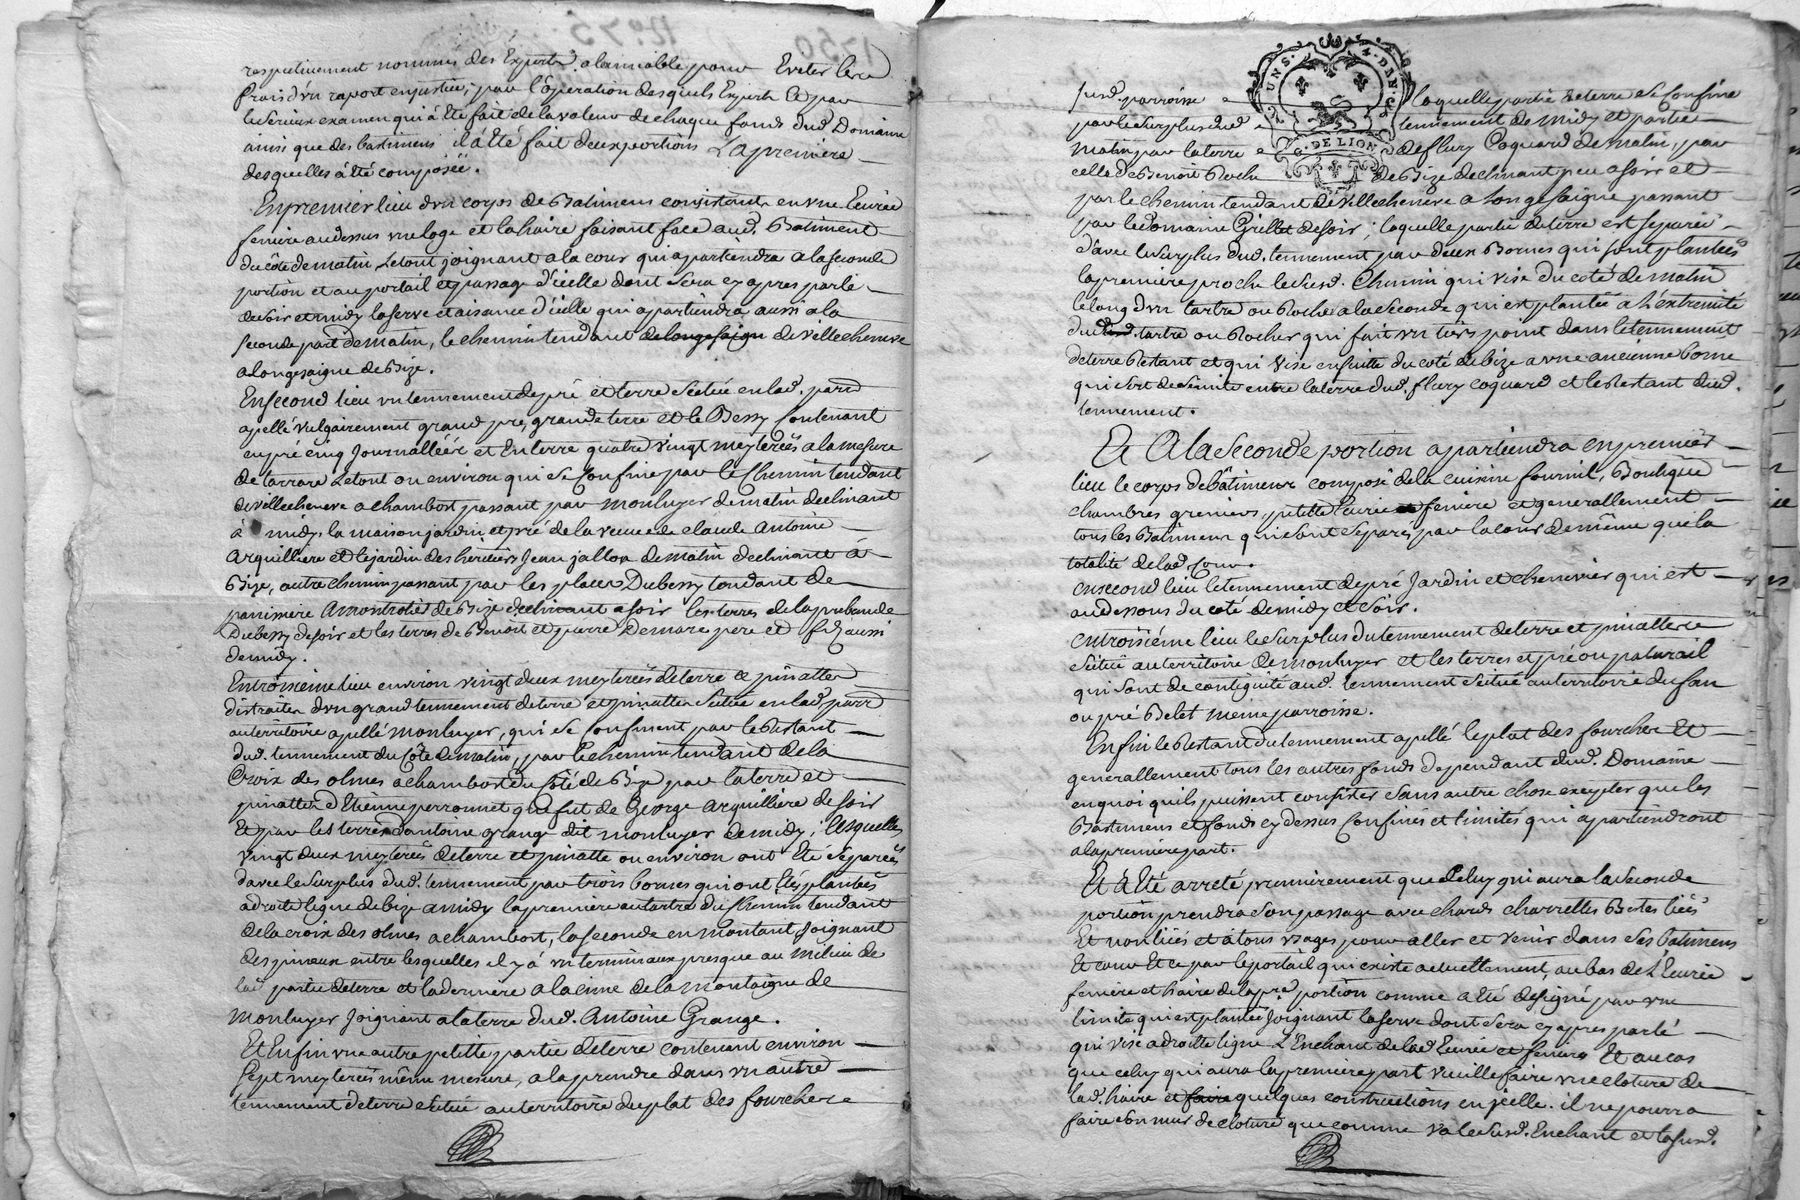 respectivement nommés des Experts alamiable pour Eviter les
frais d'vn raport enjustice, par l'opération desquels Experts Et par
leSerieux examen qui à Eté fait delavaleur dechaque fonds dud. Domaine
ainsi que des bastimens il à Eté fait deux portions Lapremiere
desquelles à Eté composéé.
Enpremier lieu d'vn corps de Batimens consistant envne Eeurée
feniere audessus vneloge et lahaire faisant face aud. Batiment
du côté dematin Letout joignant ala cour qui apartiendra alaseconde
portion et au portail et passage d'icelle dont sera cy apres parlé
desoir et midy laserve et aisance d'icelle qui apartiendra aussi a la
seconde part dematin, le chemin tendant delongesaigne de villecheneve
alongesaigne de Bize.
Ensecond lieu vn tennement de pré et terre scitué en lad. parr.
apellé vulgairement grand pré, grande terre et le Bessy Contenant
en pré cinq Journalléés et En terre quatre vingt meyterées alamesure
de tarrare Letout ou environ qui se Confine par le Chemin tendant
de villecheneve a chambost passant par monluyer de matin declinant
à midy, la maison jardin et pré de la veuve de claude Antoine
arquilliere et lejardin des heritiers Jean jallon de matin declinant à
Bize, autre chemin passant par les places Dubessy tendant de
panissiere a montrotier de Bize declinant a soir les terres de la prebande
Dubessy desoir et les terres de Benoit et pierre Demare pere et fils aussi
de midy.
Entroisieme lieu environ vingt deux meyterées de terre et pinatte
distraites d'vn grand tennement de terre et pinatte scitué en lad. parr.
au territoire apellé monluyer, qui se Confinent par le Restant
dud. tennement du Côté de matin, par le chemin tendant de la
Croix des olmes a chambost du côté de Bize par la terre et
pinatte d'Etienne perronnet qui fut de George arquilliere de soir
Et par les terres d'antoine grange dit monluyer de midy; lesquelles
vingt deux meyterées de terre et pinatte ou environ ont Eté séparées
d'avec le surplus dud. tennement par trois bornes qui ont Eté plantées
a droite ligne de bize a midy la premiere au tartre du Chemin tendant
de la croix des olmes a chambost, la seconde en montant Joignant
des pineaux entre lesquelles il y à vn terminaux presque au milieu de
lad. partie de terre et la derniere a la cime de la montaigne de
monluyer Joignant a la terre dud. Antoine Grange.
Et Enfin vne autre petitte partie de terre contenant environ
sept meyterées même mesure, a la prendre dans vn autre
tennement de terre scitué au territoire du plat des fourches
susd. parroisse laquelle partie de terre se Confine
par le surplus dud. tennement de midy et partie
matin par la terre de flury Coquard de matin, par
celle de Benoit Roche de Bize declinant peu a soir et
par le chemin tendant de villecheneve a Longesaigne passant
par le domaine Grillet de soir; laquelle partie de terre est séparée
d'avec le surplus dud. tennement par deux Bornes qui sont plantées
la premiere proche le susd. Chemin qui vise du coté de matin
le long d'vn tartre ou Roche a la seconde qui est plantée a L'extremité
dud. tartre ou Rocher qui fait vn tiers point dans le tennement
de terre Restant et qui Vise ensuitte du coté de bize a vne ancienne borne
qui sert de limite entre la terre dud. flury coquard et le Restant dud.
tennement.
Et A la Seconde portion apartiendra en premier
lieu le corps de bâtimens composé de la cuisine fournil, Boutique
chambres greniers, petitte Eeurie feniere et generallement
tous les Batimens qui sont separés par la cour de même que la
totalité de lad. Cour.
en second lieu le tennement de pré Jardin et chenevier qui est
au dessous du coté de midy et soir.
en troisiéme lieu le surplus du tennement de terre et pinatte
scitué au territoire de monluyer et les terres et pré ou paturail
qui sont de contiguité aud. tennement scitué au territoire du fau
ou pré Belet même parroisse.
Enfin le Restant du tennement apellé le plat des fourches Et
generallement tous les autres fonds dependant dud. Domaine
en quoi qu'ils puissent consister sans autre chose excepter que les
Bastimens et fonds cy dessus Confinés et limités qui apartiendront
a la premiere part.
Et à Eté arreté premierement que Celuy qui aura la Seconde
portion prendra son passage avec chards charrettes Bestes liéés
Et non liéés et à tous vsages pour aller et venir dans ses batimens
Et cour Et ce par le portail qui existe actuellement, au bas de L'Eeurie
feniere et haire de la pre. portion comme a Eté designé par vne
limite qui est plantée Joignant la serve dont sera cy apres parlé
qui vise a droitte ligne L'Enchant de lad. Eeurie et feniere Et au cas
que celuy qui aura la premiere part veuille faire vne cloture de
lad. haire et faire quelques constructions en icelle. il ne pourra
faire son mur de cloture que comme va le susd. Enchant et la susd.
G. DE LION